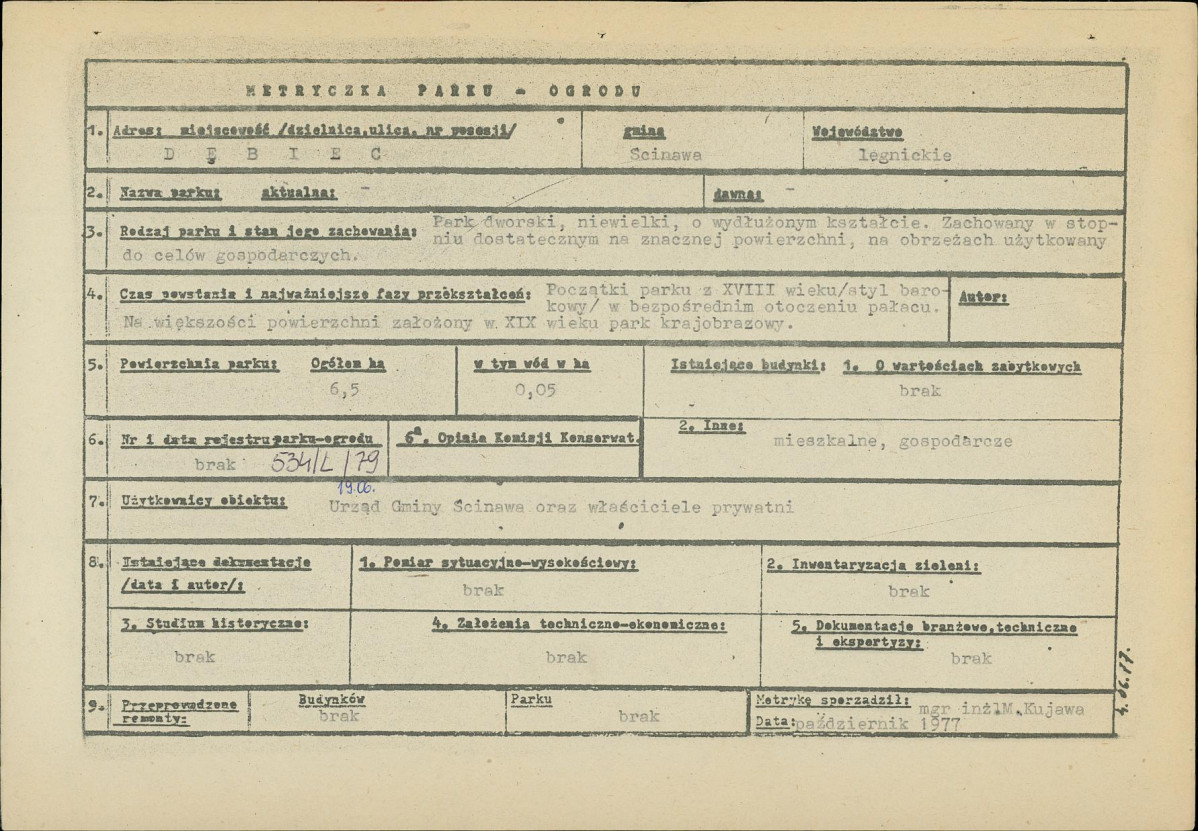 METRYCZKA PARKU - OGRODU
1. Adres: miejscowość /dzielnica, ulica, nr posesji/ gmina Województwo
D Ę B I E C Ścinawa legnickie
2. Nazwa parku: aktualna: - dawna: -
3. Rodzaj parku i stan jego zachowania: Park dworski, niewielki, o wydłużonym kształcie. Zachowany w stop-
niu dostatecznym na znacznej powierzchni, na obrzeżach użytkowany
do celów gospodarczych.
4. Czas powstania i najważniejsze fazy przekształceń: Początki parku z XVIII wieku/styl baro-
kowy/ w bezpośrednim otoczeniu pałacu.
Na większości powierzchni założony w XIX wieku park krajobrazowy.
Autor:
5. Powierzchnia parku: Ogółem ha w tym wód w ha Istniejące budynki: 1. O wartościach zabytkowych
6,5 0,05 brak
6. Nr i data rejestru parku-ogrodu 6a. Opinia Komisji Konserwat. 2. Inne:
brak 534/L/79 mieszkalne, gospodarcze
19.06.
7. Użytkownicy obiektu: Urząd Gminy Ścinawa oraz właściciele prywatni
8. Istniejące dokumentacje 1. Pomiar sytuacyjno-wysokościowy: 2. Inwentaryzacja zieleni:
/data i autor/: brak brak
3. Studium historyczne: 4. Założenia techniczno-ekonomiczne: 5. Dokumentacje branżowe, techniczne
i ekspertyzy:
brak brak brak
9. Przeprowadzone Budynków Parku Metrykę sporządził:
remonty: brak brak mgr inż. M. Kujawa
Data: październik 1977